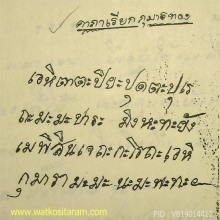 คาถาเรียกกุมารทอง
เอหิตาตะปิยะปุตตะปุเร
ถะมะมะปาระ มิงหะทะยัง
เมพิสินเจถะกะโรถะเอหิ
กุมารามะมะ นะมะพะทะ
www.watkositaram.com